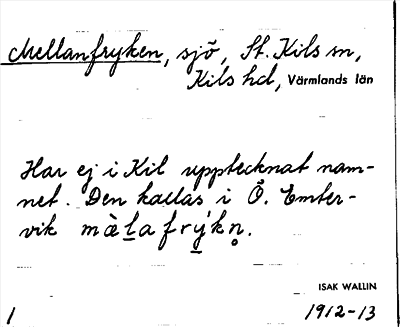 Mellanfryken, sjö, St. Kils sn,
Kils hd, Värmlands län
Har ej i Kil upptecknat nam-
net. Den kallas i Ö. Emter-
vik mὰl̲afrýkn̥.
ISAK WALLIN
1 1912-13